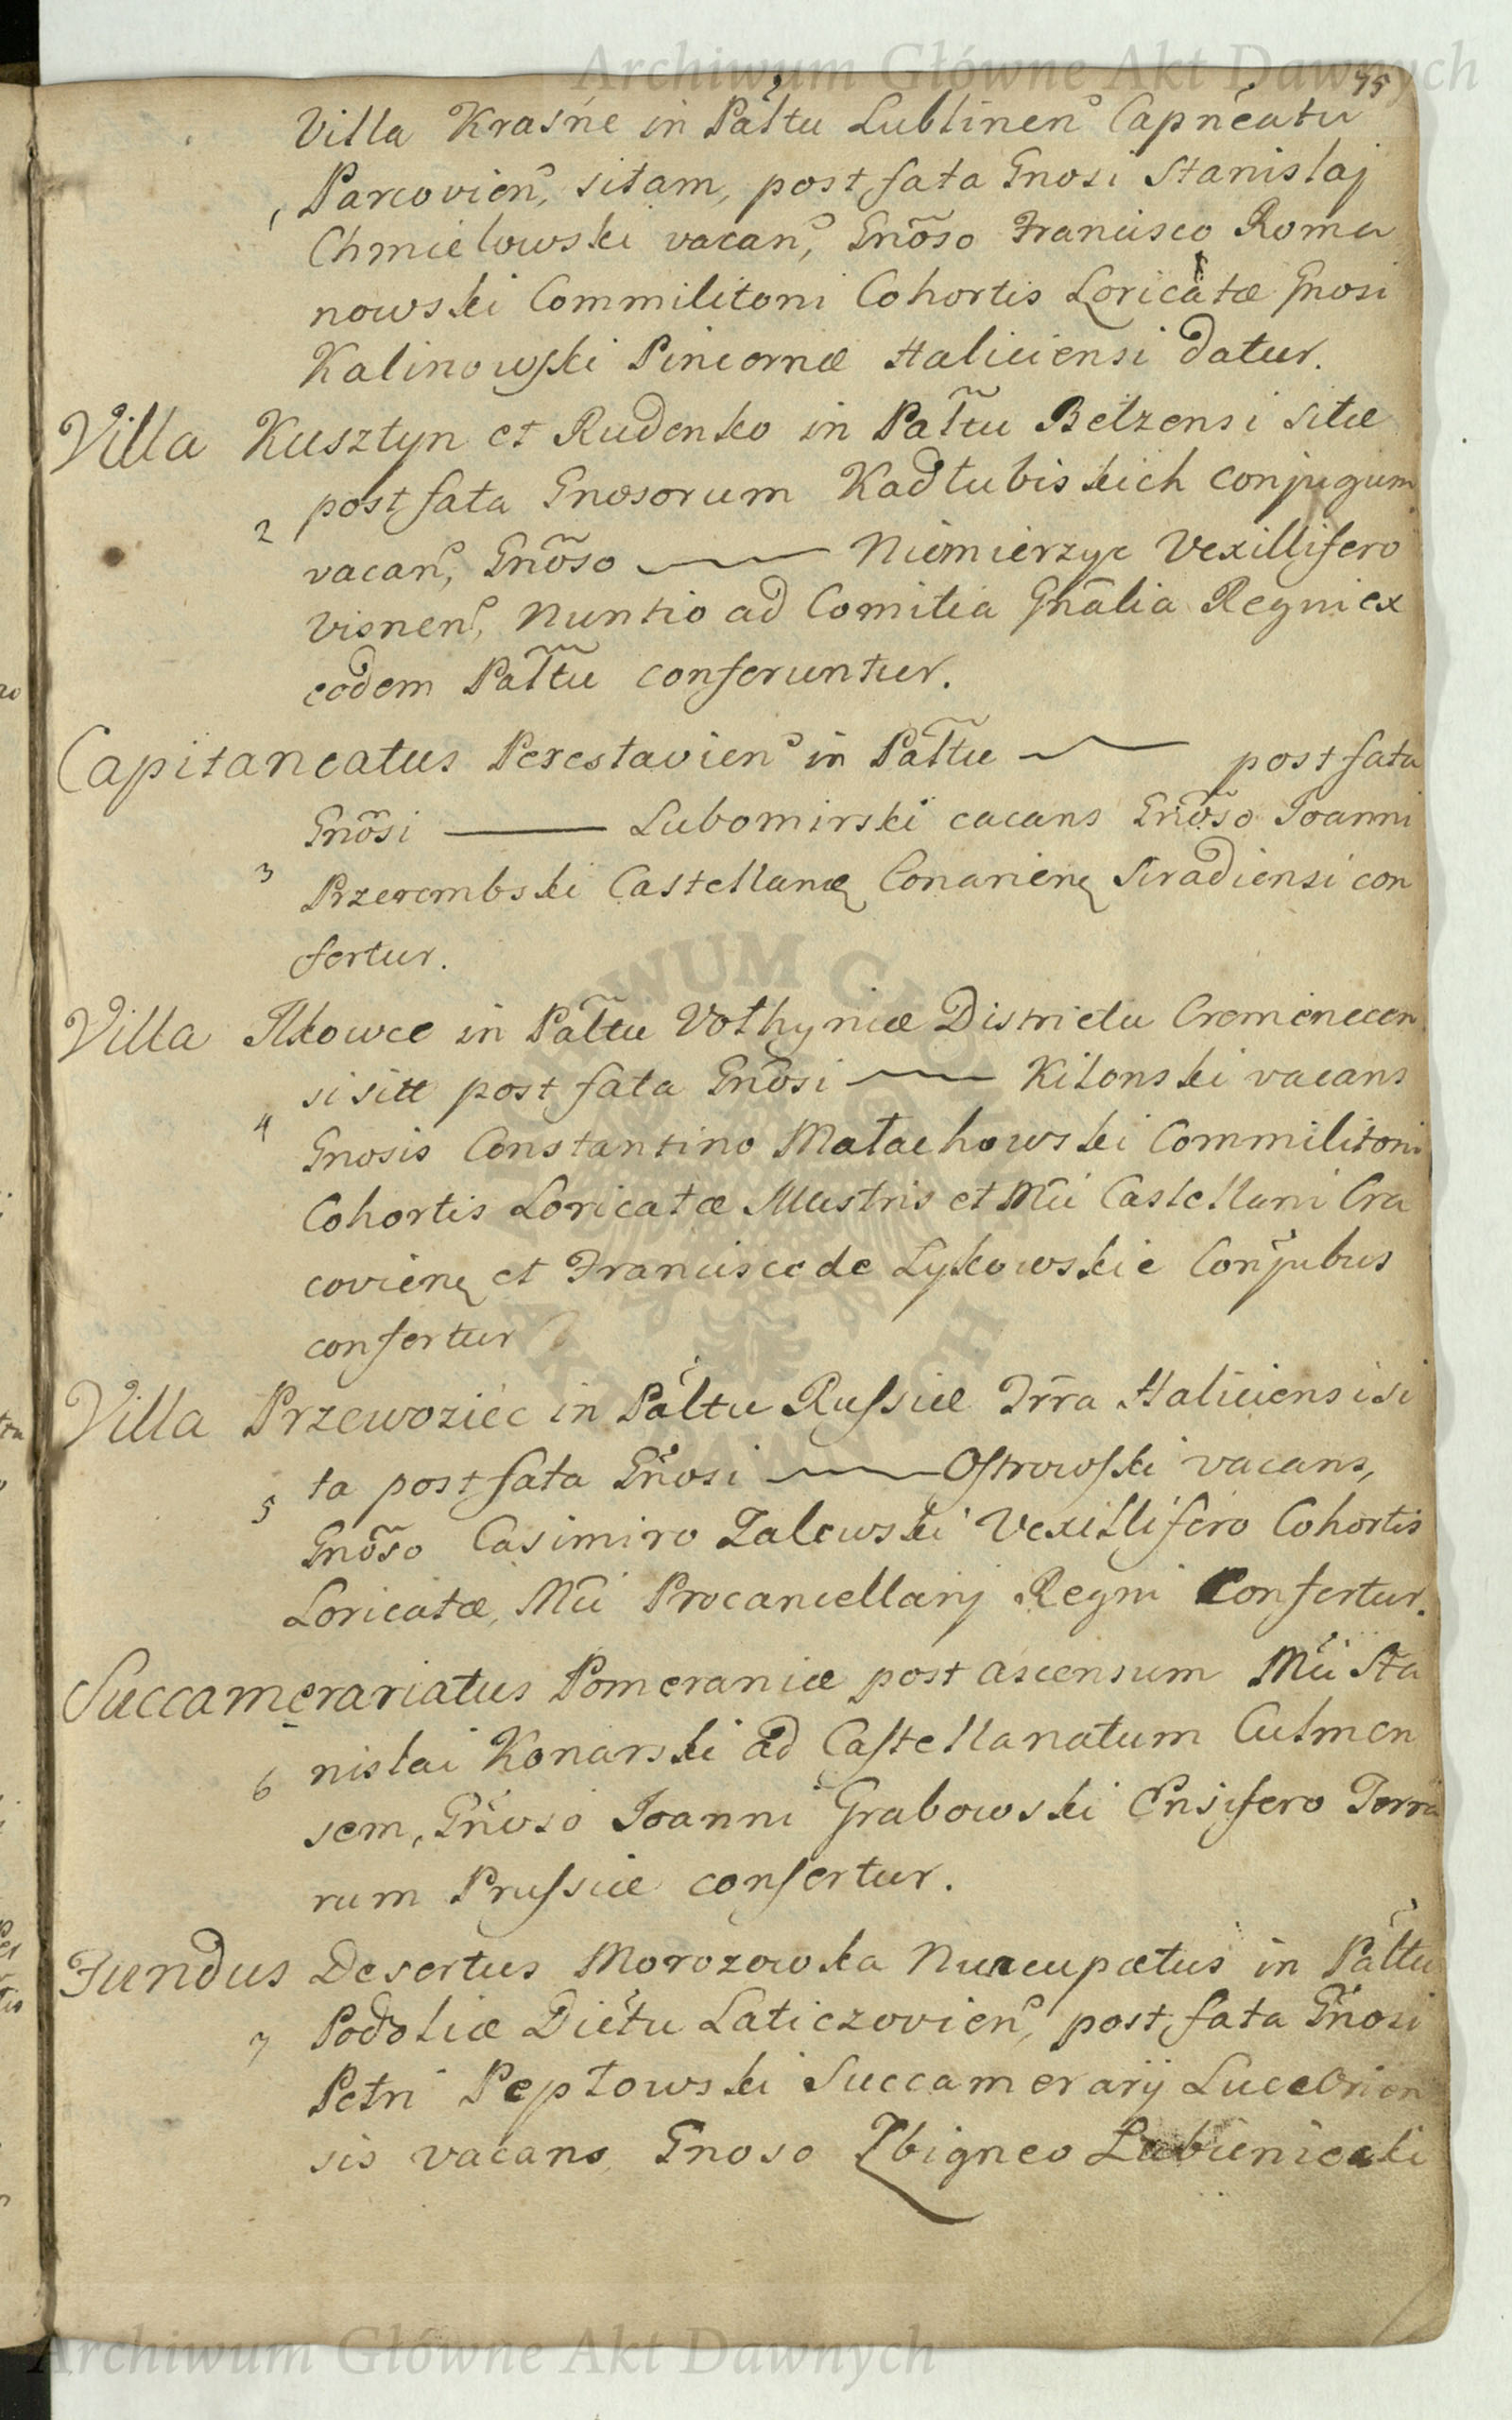 Archiwum Główne Akt Dawnych
75
Villa Krasne in Pałtu Lublinen Capneatu
1 Parcovien, sitam, post fata Gnosi Stanislaj
Chmielowski vacan, Gnõso Francisco Roma
nowski Commilitoni Cohortis Loricatæ Gnosi
Kalinowski Pincernæ Haliciensi datur.
Villa Kusztyn et Rudenko in Pałtu Belzensi sitæ
post fata Gnosorum Kadłubiskich conjugum
2 vacan, Gnõso — Niemierzyc Vexillifero
Visnen, Nuntio ad Comitia Gnãlia Regni ex
eodem Pałtu conferuntur.
Capitaneatus Perestavien in Pałtu — post fata
Gnõsi — Lubomirski cacans Gnõso Joanni
3 Przerembski Castellanæ Conarien Siradiensi con
fertur.
Villa Ilkowce in Pałtu Vołhyniæ Districtu Cremenecen
si sitæ post fata Gnõsi — Kilonski vacans
4 Gnosis Constantino Małachowski Commilitoni
Cohortis Loricatæ Illustris et Mci Castellani Cra
covien et Francisce de Lykowskie Conjubus
confertur
Villa Przewoziec in Pałtu Russiæ Trra Haliciensi si
ta post fata Gnosi — Ostrowski vacans,
5 Gnõso Casimiro Zalewski Vexillifero Cohortis
Loricatæ, Mci Procancellarij Regni Confertur.
Succamerariatus Pomeraniæ post ascensum Mci Sta
nislai Konarski ad Castellanatum Culmen
6 sem, Gnoso Joanni Grabowski Ensifero Terra
rum Prussiæ confertur.
Fundus Desertus Morozowka Nuncupatus in Pałtu
7 Podoliæ Dictu Laticzovien, post fata Gnosi
Petri Pepłowski Succamerarij
sis vacans Gnoso Zbigneo Lubieniecki
Archiwum Główne Akt Dawnych